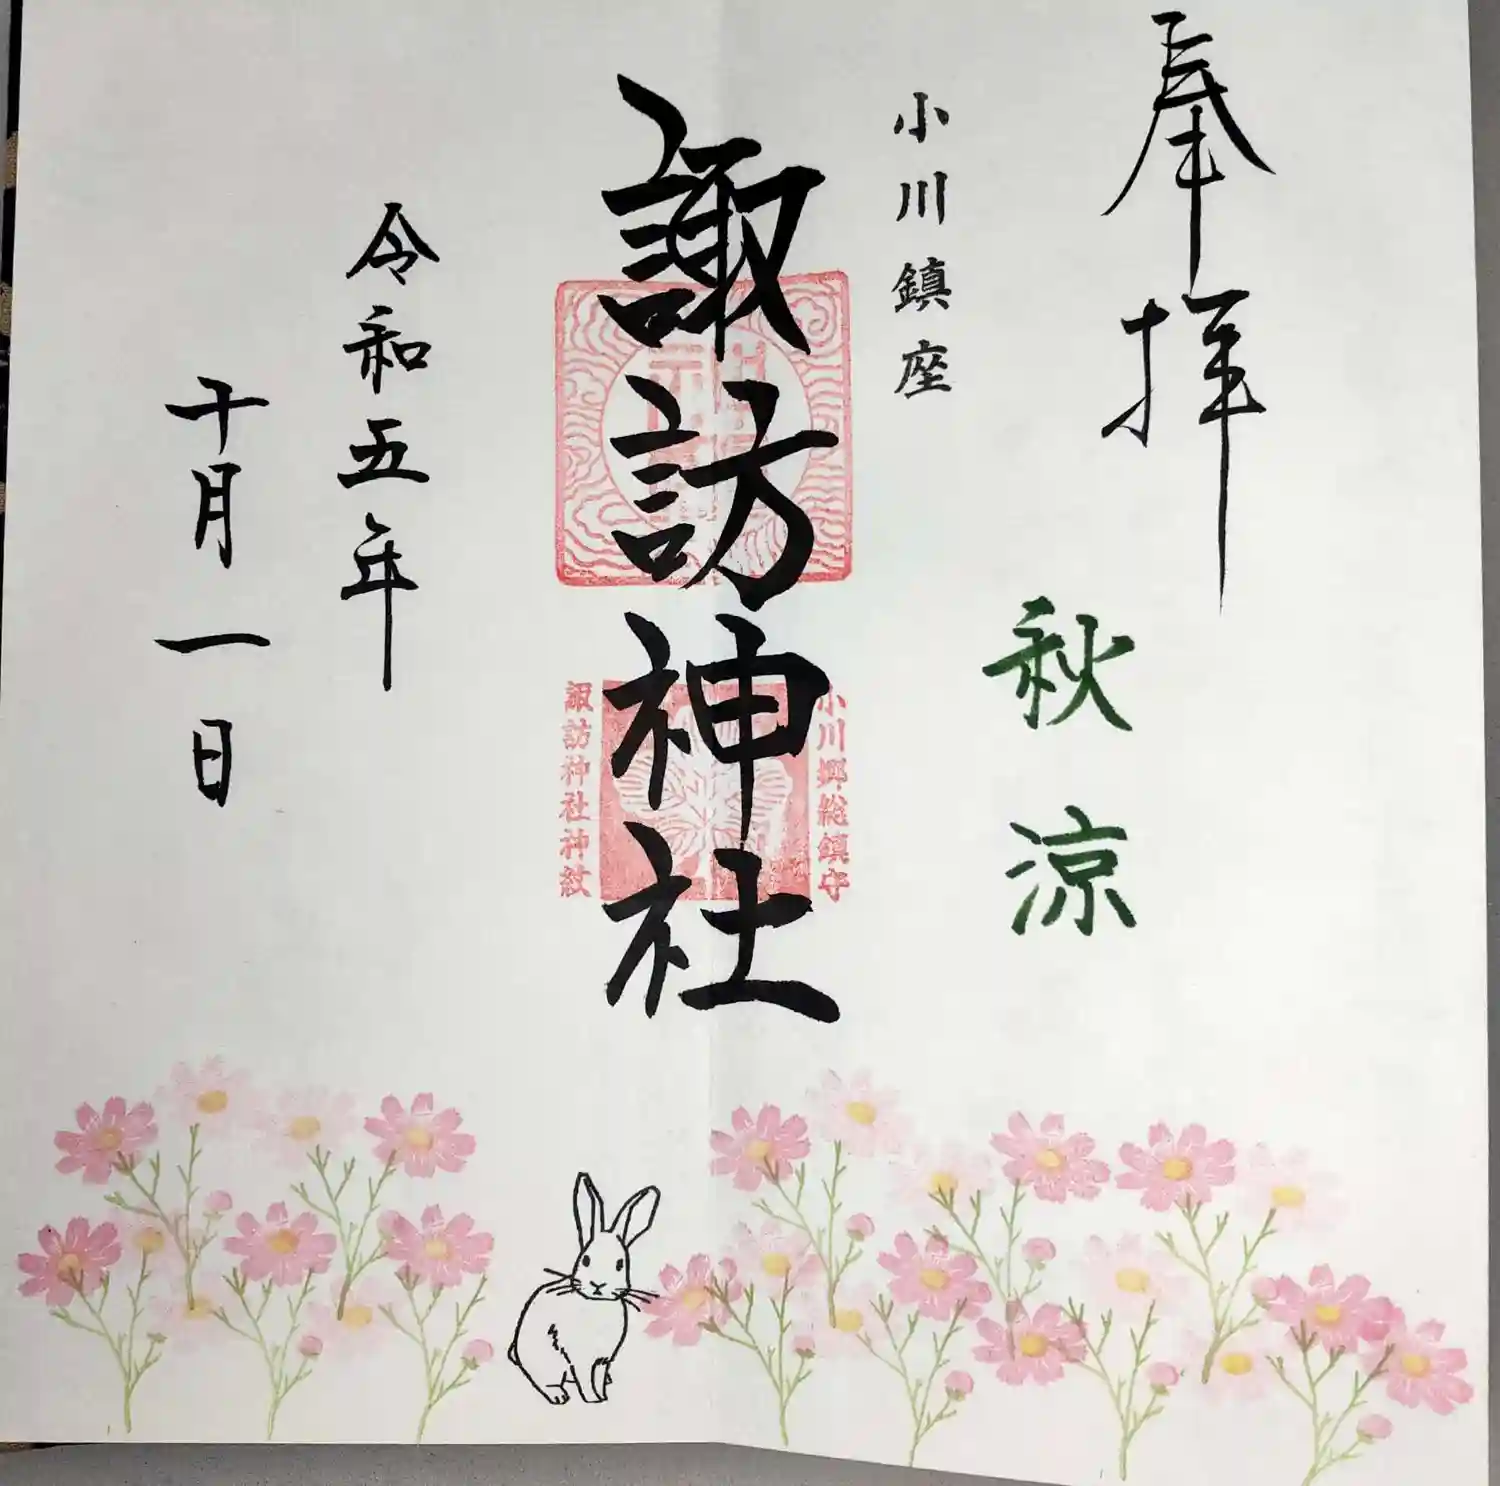 奉拝
秋涼
小川鎮座
諏訪神社
小川郷総鎮守
諏訪神社神紋
令和五年
十月一日